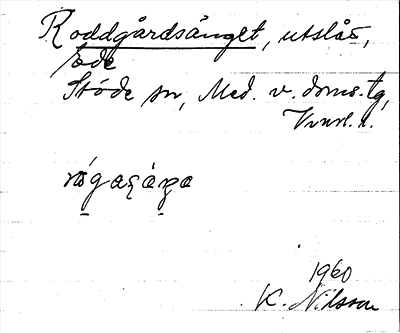 Roddgårdsänget, utslås,
Ede
Stöde sn, Med. v. doms.tg,
Vnrl. l.
1960
K. Nilsson